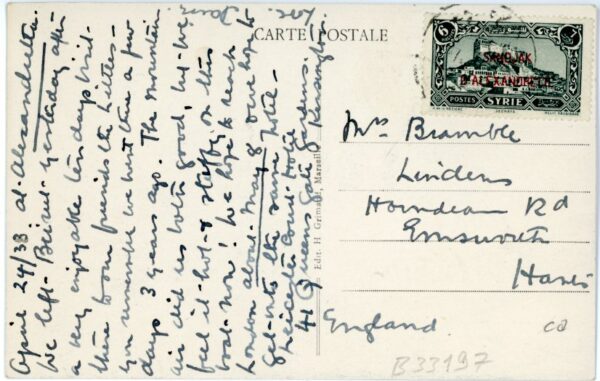 CARTE POSTALE
April 24/38 at Alexandretta.
We left Beirut yesterday after
a very enjoyable ten days visit
there to our friends the
you remember we went there a few
days 3 years ago. The mountain
air did us both good, but we
feel it hot & stuffy on this
boat now! We hope to reach
London about May 8 & hope to
get into the same hotel -
Leicester Court Hotel
41 Queens Gate Gardens.
Kensington
Love.
6
SANDJAK
D'ALEXANDRETTE
POSTES SYRIE
Edit. H Grimaud, Marseille
Mrs Bramble
Lindens
Horndean Rd
Emsworth
Hants
England
CD
B33197